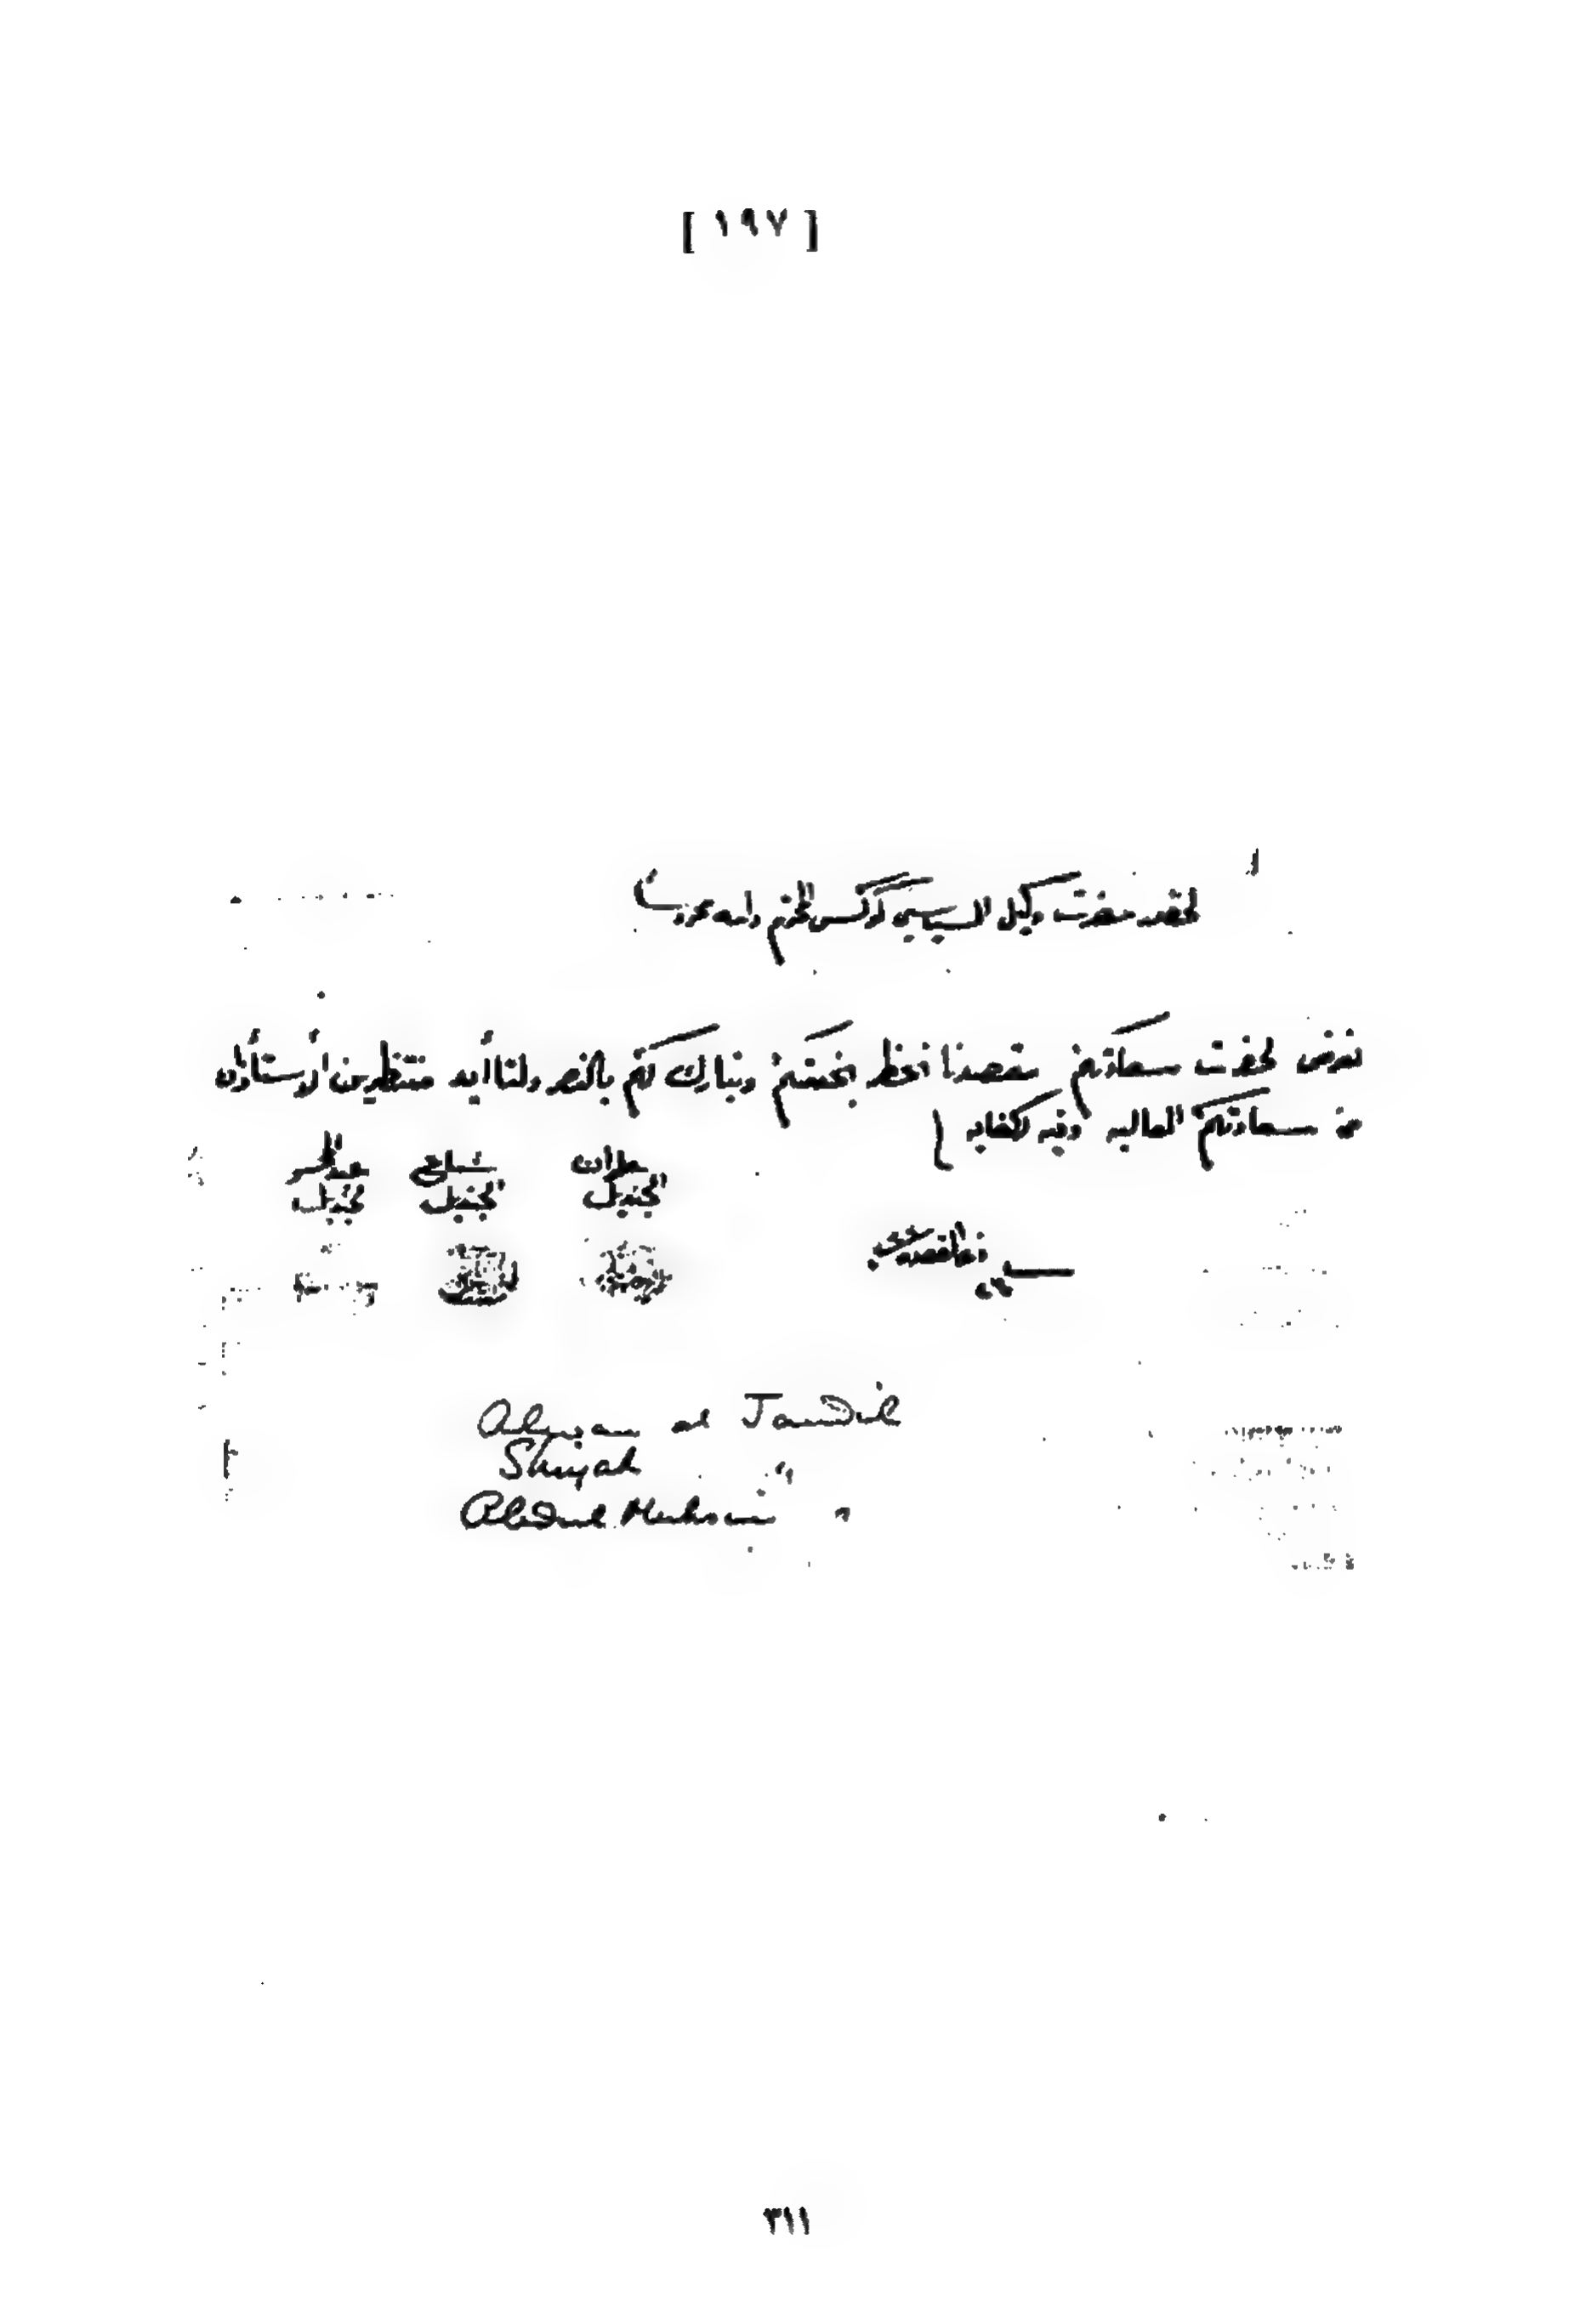 [ ١٩٧ ]
لحضرة حضرت وكيل السياسي كوكس المحترم دامه محروسا
نعرض لحضرت سعادتكم مقصدنا نحظر بخدمتكم ونبارك لكم بالنصر ولنا أيد منتظرين الاستأذان
من سعادتكم العاليه وفيه الكفايه
علوان الجنديل
شياع الجنديل
عبد المحسن الجنديل
Alwan al Jandil
Shiyah "
Abdul Muhsin "
٣١١